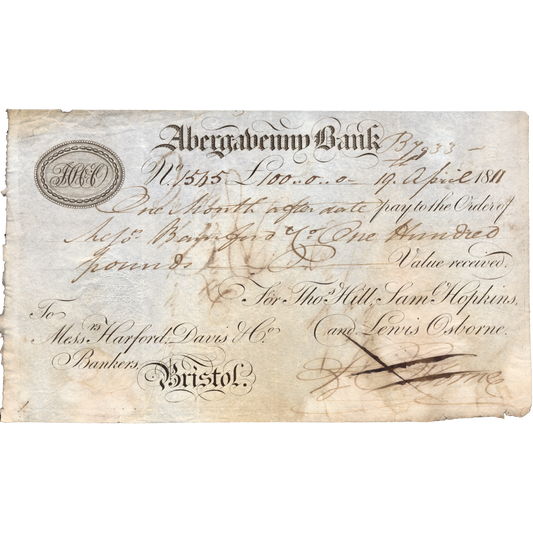 Abergavenny Bank
B7933 -
No. 1545 £100..0..0 - 19 April 1811
One Month after date pay to the Order of
Messrs. Bamford & Co. One Hundred
pounds Value received.
For Thos. Hill, Saml. Hopkins,
and Lewis Osborne.
To
Messrs. Harford, Davis & Co.
Bankers,
Bristol.